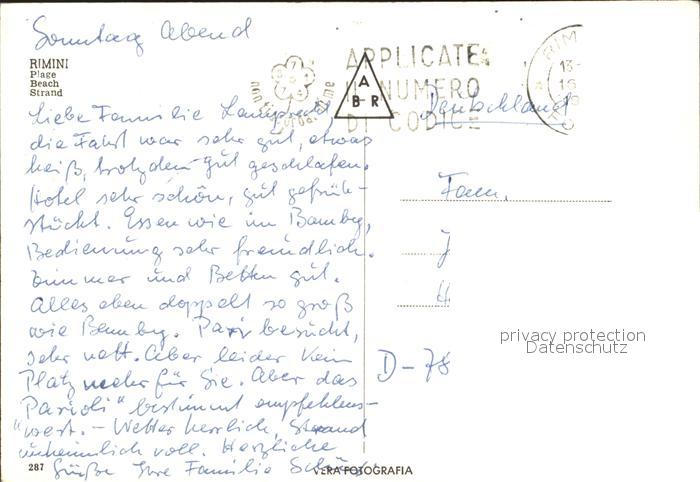 Sonntag Abend
RIMINI
Plage
Beach
Strand
APPLICATE
IL NUMERO
DI CODICE
A
B-R
RIM
13-
16
Liebe Familie
die Fahrt war sehr gut, etwas
heiß, trotzdem gut geschlafen.
Hotel sehr schön, gut gefrüh-
stückt. Essen wie im Bambg,
Bedienung sehr freundlich.
Zimmer und Betten gut.
Alles eben doppelt so groß
wie Bambg. besucht,
sehr nett. Aber leider kein
Platz mehr für Sie. Aber das
"Parioli" bestimmt empfehlens-
wert. – Wetter herrlich, Strand
unheimlich voll. Herzliche
Grüße Ihre Familie
Deutschland
Fam.
J
H
D-78
privacy protection
Datenschutz
287
VERA FOTOGRAFIA